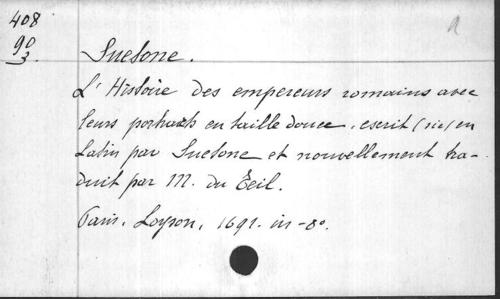 408
90
3.
a
Suetone.
L'Histoire des empereurs romains avec
leurs portraits en taille douce, escrit (sic) en
Latin par Suetone et nouvellement tra-
duit par M. du Teil.
Paris, Loyson, 1691. in-8°.